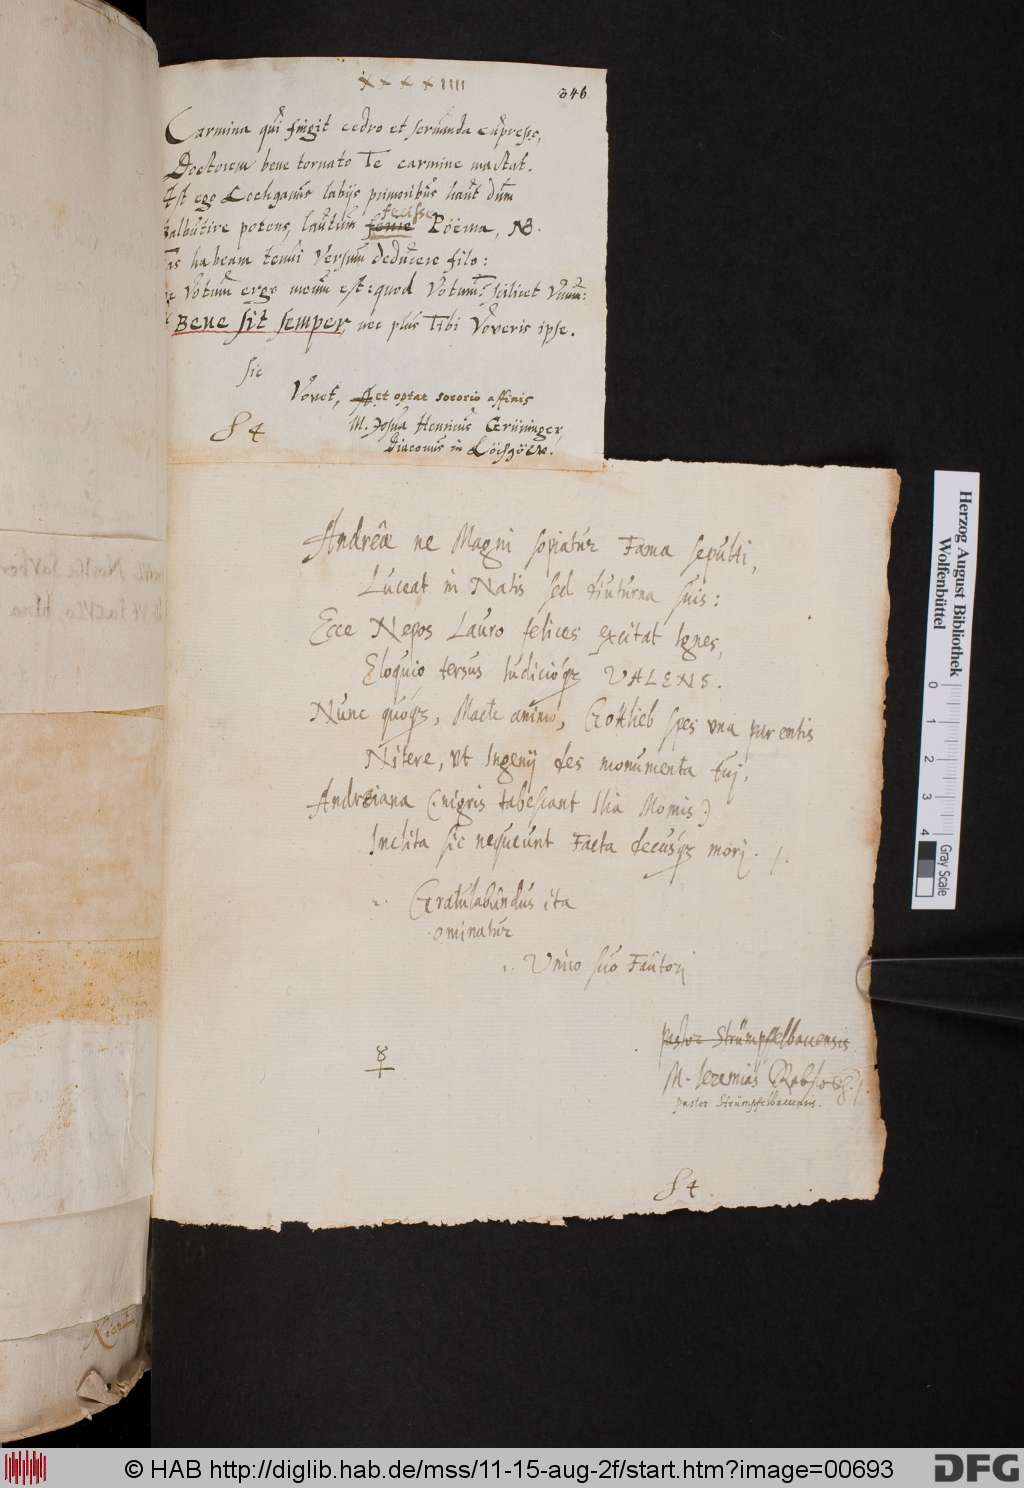 x x x x IIII
346
Carmina qui fingit cedro et servanda cupresso,
Doctorem bene tornato Te carmine mactat.
Ast ego Lochgavus labijs primoribus haut dum
Balbutire potens, lautum fecisse Pöema, NB.
has habeam tenui Versum deducere filo:
Votum ergo meum est: quod Votum? scilicet Unum:
Bene sit semper, nec plus Tibi Voveris ipse.
sic
Vovet, et optat socorio affinis
M. Josua Henricus Grüninger,
Diaconus in Löchgöw.
S 4
Andreæ ne Magni sopiatur Fama sepulti,
Luceat in Natis sed diuturna suis:
Ecce Nepos Lauro felices excitat Ignes,
Eloquio tersus Iudicióqz VALENS.
Nunc quóqz, Macte animo, Gottlieb spes una parentis
Nitere, ut Ingenij des monumenta tuj.
Andreiana (nigris tabescant Ilia Momis)
Inclita sic nequeunt Facta decusqz morj. /.
Gratulabundus ita
ominatur
Unico suo Fautorj
Pastor Strümpffelbacensis
M. Jeremias
pastor Strümpfelbacensis.
S 4
Herzog August Bibliothek
Wolfenbüttel
0 1 2 3 4
Gray Scale
© HAB http://diglib.hab.de/mss/11-15-aug-2f/start.htm?image=00693
DFG